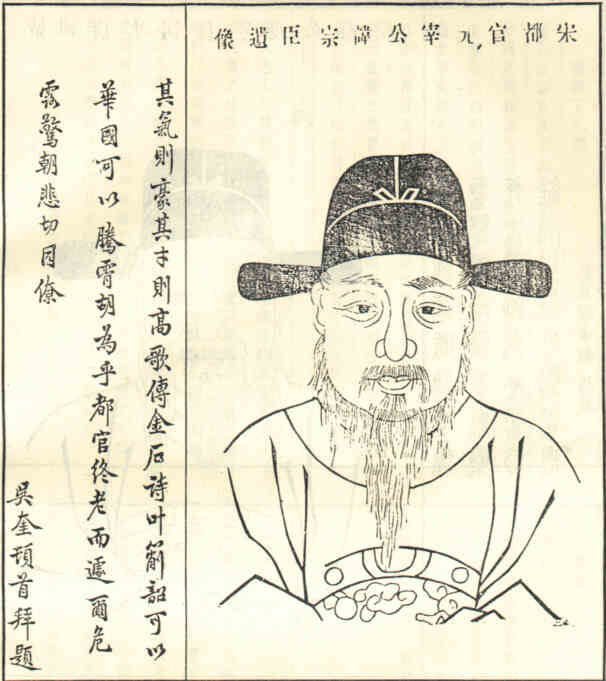 宋都官元宰公諱宗臣遺像
其氣則豪其才則高歌傳金石詩叶簫韶可以
華國可以騰霄胡為乎都官終老而遽爾危
露驚朝悲切同僚
吳奎頓首拜題